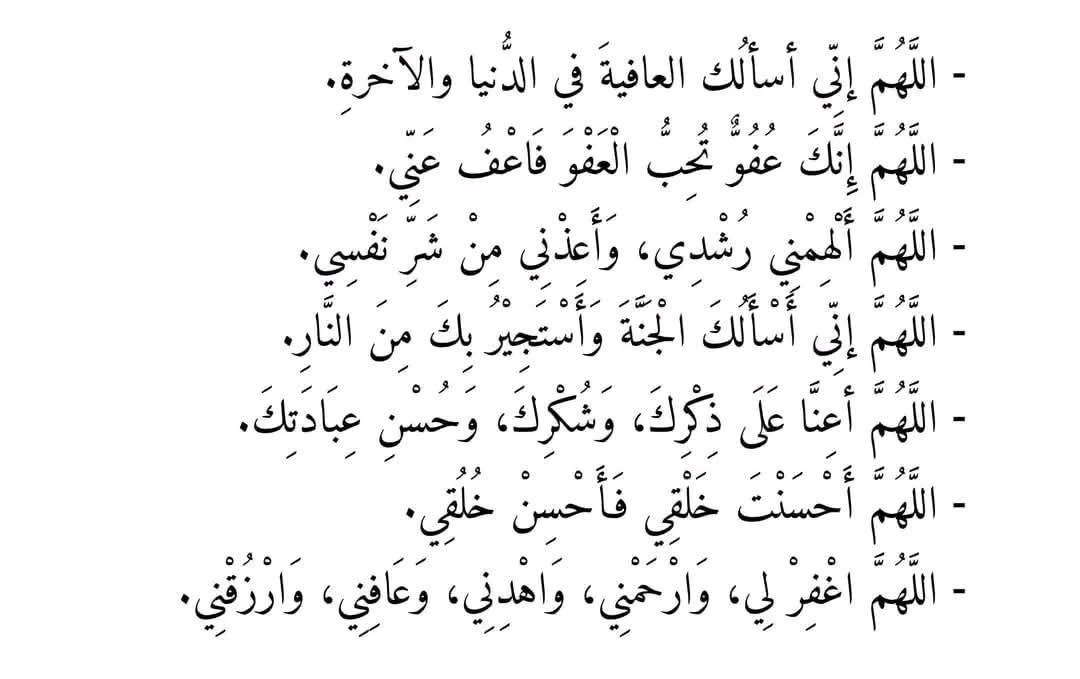 - اللَّهُمَّ إنِّي أسألُك العافيةَ في الدُّنيا والآخرةِ.
- اللَّهُمَّ إِنَّكَ عُفُوٌّ تُحِبُّ الْعَفْوَ فَاعْفُ عَنِّي.
- اللَّهُمَّ أَلْهِمْنِي رُشْدِي، وَأَعِذْنِي مِنْ شَرِّ نَفْسِي.
- اللَّهُمَّ إنِّي أَسْأَلُكَ الْجَنَّةَ وَأَسْتَجِيْرُ بِكَ مِنَ النَّارِ.
- اللَّهُمَّ أعِنَّا عَلَى ذِكْرِكَ، وَشُكْرِكَ، وَحُسْنِ عِبَادَتِكَ.
- اللَّهُمَّ أَحْسَنْتَ خَلْقِي فَأَحْسِنْ خُلُقِي.
- اللَّهُمَّ اغْفِرْ لِي، وَارْحَمْنِي، وَاهْدِنِي، وَعَافِنِي، وَارْزُقْنِي.